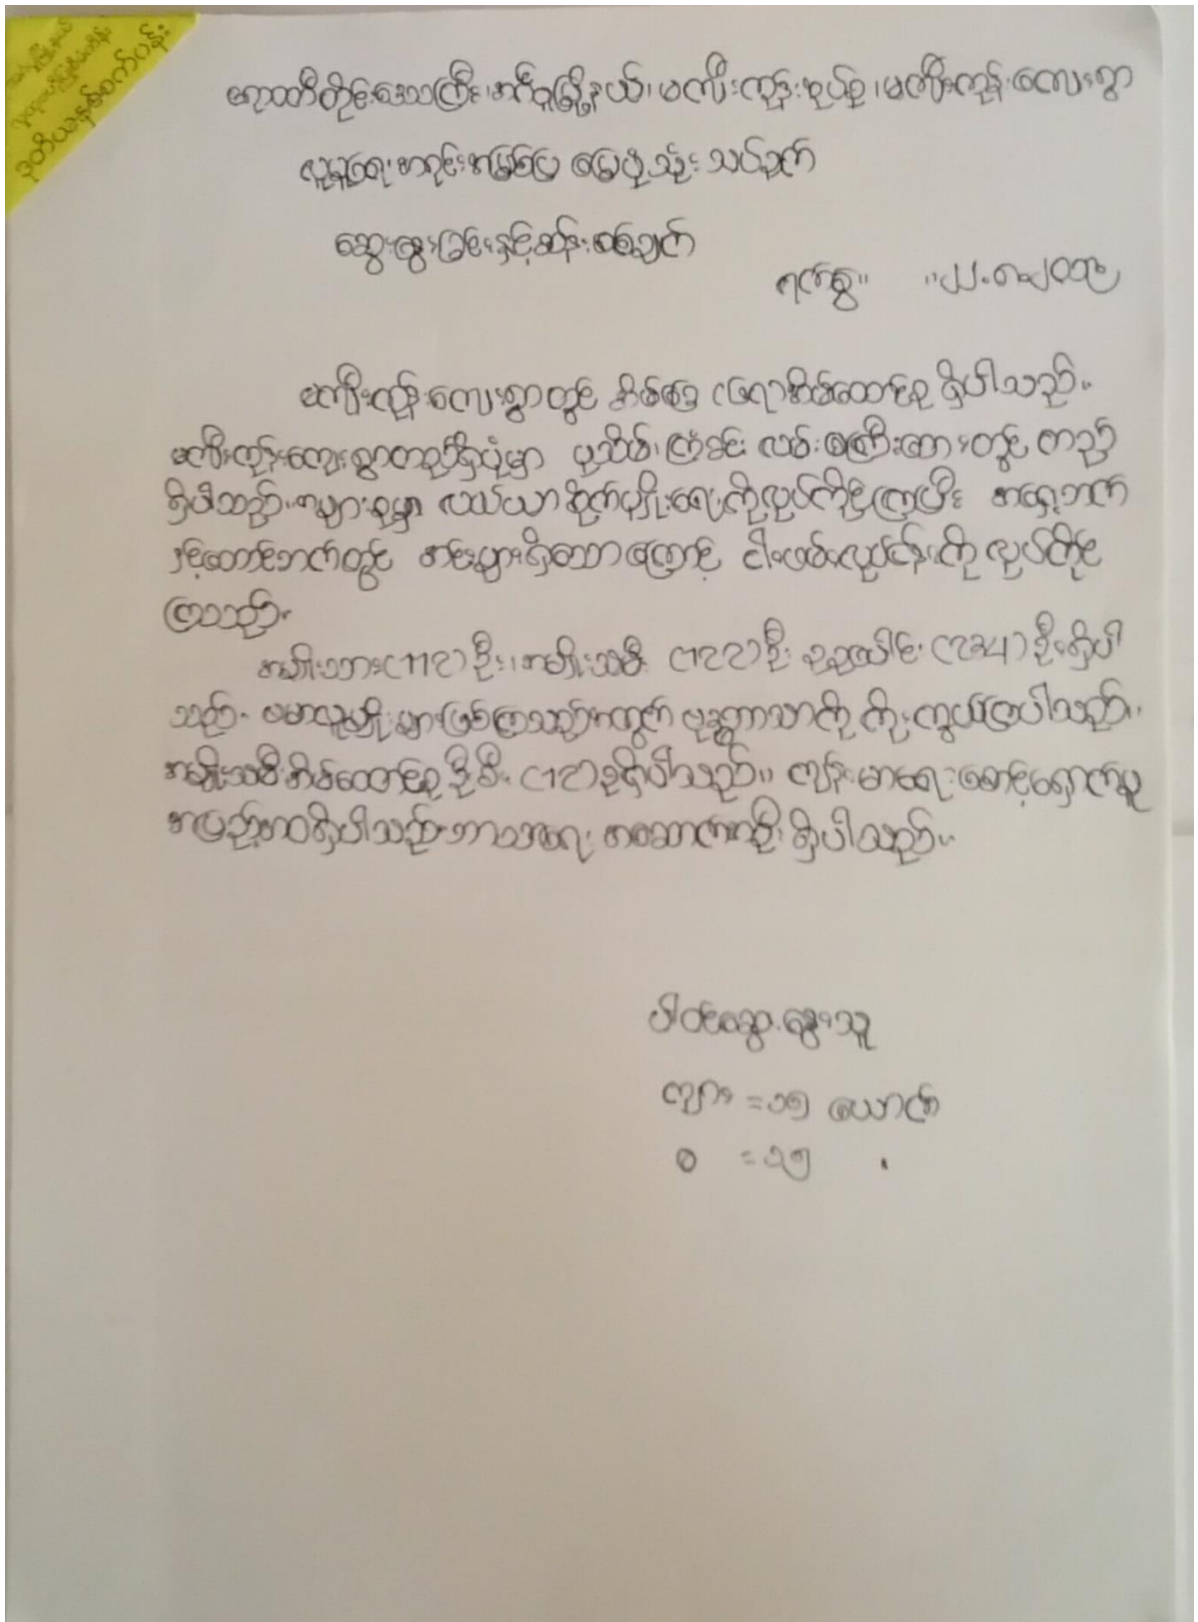 ဒုတိယနှစ်စက်ပန်း
ဧရာဝတီတိုင်းဒေသကြီး၊ အင်္ဂပူမြို့နယ်၊ မကျီးကုန်းအုပ်စု၊ မကျီးကုန်းကျေးရွာ
လူမှုရေး အရင်းအမြစ်ပြ မြေပုံ သုံး သပ်ချက်
ဆွေးနွေးခြင်းနှင့်ဆန်းစစ်ချက်
ရက်စွဲ။ ။
မကျီးကုန်းကျေးရွာတွင် အိမ်ခြေ အိမ်ထောင်စု ရှိပါသည်။
မကျီးကုန်းကျေးရွာတည်ရှိပုံမှာ ပုသိမ်၊ ကြံခင်း လမ်းမကြီးဘေးတွင် တည်
ရှိပါသည်။ များစုမှာ လယ်ယာ စိုက်ပျိုးရေးကိုလုပ်ကိုင်ကြပြီး အရှေ့ဘက်
နှင့်တောင်ဘက်တွင် အင်းများရှိသောကြောင့် ငါးဖမ်းလုပ်ငန်းကို လုပ်ကိုင်
ကြသည်။
အမျိုးသား (112) ဦး၊ အမျိုးသမီး (122) ဦး စုစုပေါင်း (234) ဦးရှိပါ
သည်။ ဗမာလူမျိုးများဖြစ်ကြသည့်အတွက် ဗုဒ္ဓဘာသာကို ကိုးကွယ်ကြပါသည်။
အမျိုးသမီးအိမ်ထောင်စု ဦးစီး (12) စုရှိပါသည်။ ကျန်းမာရေးစောင့်ရှောက်မှု
အပြည့်အဝရှိပါသည်။ ဘာသာရေး အဆောက်အဦး ရှိပါသည်။
ပါဝင်ဆွေးနွေးသူ
ကျား = ၁၅ ယောက်
မ = ၁၅ "